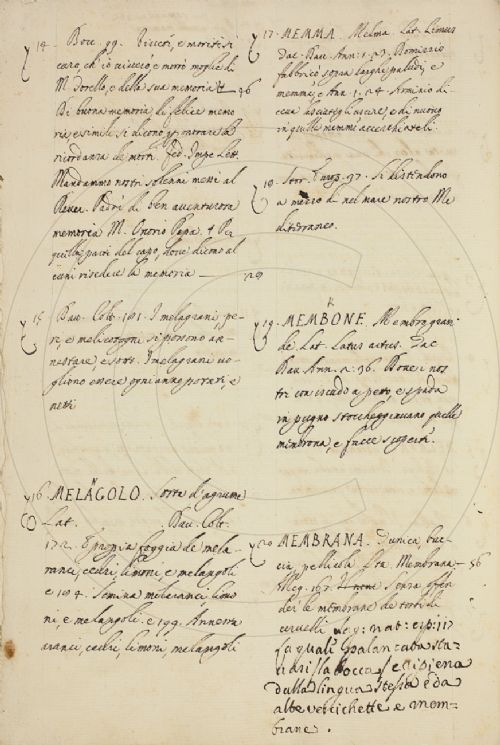 14. Bocc. 99. Vivevi, e moristi si
caro, ch'io vivevo, e morrò moglie di
M. Torello, e della sua memoria 36
Di buona memoria, di felice memo
ria, e simile si dicono p. onorare la
ricordanza de morti. Fed. Imp. Lett.
Mandammo nostri solenni messi al
Padri di ben avventurosa
memorea M. Onorio Papa. ¶ Per
quella parte del capo, dove dicono al
cuni risedere la memoria — 29
15 Dav. Colt. 181. I melagrani, pe-
ri, e meli cotogni si possono an-
nestare, e sorb. I melagrani vo-
gliono essere ogni anno potati, e
netti
16. MELANGOLO. Sorta d'agrume
Lat. Dav. Colt.
172. È propria foggia de mela-
ranci, cedri, limoni, e melangoli
e 194. Semina melaranci, limo
ni, e melangoli. e 199. Annesta
aranci, cedri, limoni, melangoli
17. MEMMA. Melma. Lat. Limus
Dav. Ann. 1. 23. Domizio
fabbricò sopra larghe paludi, e
memme, e Ann. 1. 24. Arminio di-
ceva lasciategli uscire, e di nuovo
in quelle memme accerchiateli.
18. Stor. 37. Si distendono
a mezzo dì nel mare nostro Me
diterraneo.
19. MEMBRONE. Membro gran-
de Lat. Latus artus. Tac
Dav Ann. 2. 36. Dove i nos
tri con iscudo a petto, e spada
in pugno stoccheggiavano quelle
membrona, e facce scoperti.
20. MEMBRANA. Tunica, buc-
cia, pellicola sta. Membrana — 56
Alleg. 167. sopra offen
der le membrane de tortili
cervelli
fa quali spalancata sta-
ndosi la bocca
dalla lingua stessa e da
altre vescichette e mem-
brane.